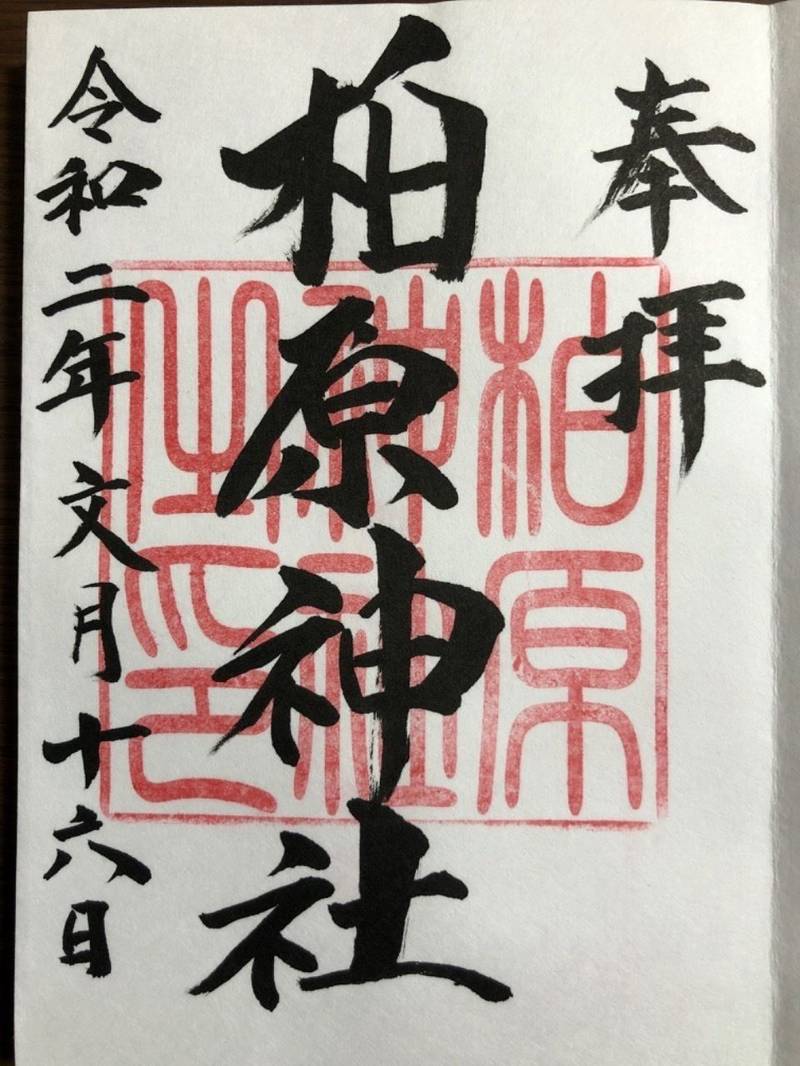 奉拝
柏原神社
令和二年文月十六日
柏原
神社
之印